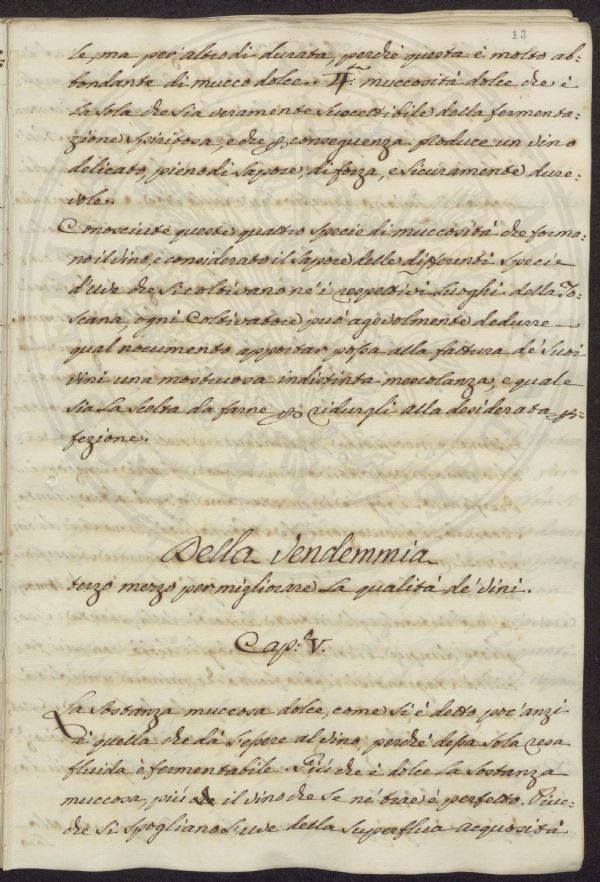 13
le, ma per altro di durata, perchè questa è molto ab=
bondante di mucco dolce. 4.ta muccosità dolce che è
la sola che sia veramente suscettibile della fermenta=
zione spiritosa, e che p conseguenza produce un vino
delicato, pieno di sapore, di forza, e sicuramente dure=
vole.
Conosciute queste quattro specie di muccosità che forma=
no il vino, e considerato il sapore delle differenti specie
d'uve che si coltivano ne' i respettivi luoghi della To=
scana, ogni Coltivatore può agevolmente dedurre
qual nocumento apportar possa alla fattura de' suoi
vini una mostruosa indistinta mescolanza, e quale
sia la scelta da farne p ridurgli alla desiderata p=
fezione.
Della Vendemmia
terzo mezzo per migliorare la qualità de' vini.
Cap.o V.
La sostanza muccosa dolce, come si è detto poc'anzi
è quella che dà l'essere al vino, perchè dessa sola resa
fluida è fermentabile. Più che è dolce la sostanza
muccosa, più il vino che se ne trae è perfetto. Più=
che si spogliano l'uve della superflua acquosità